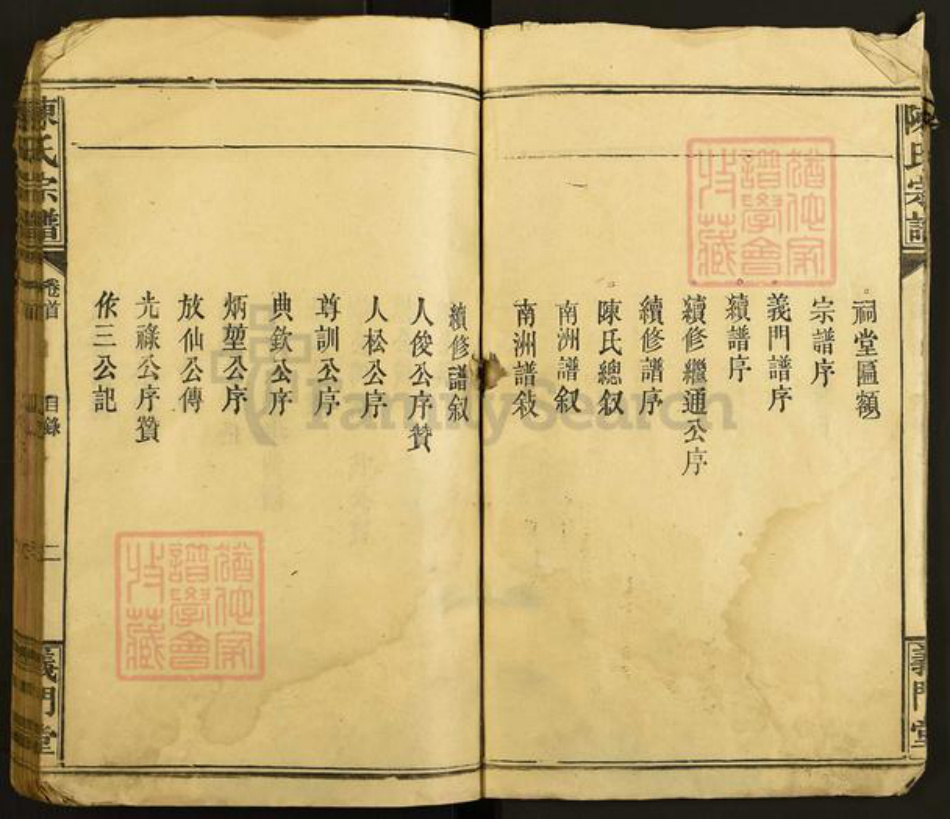 陳氏宗譜
義門堂
祠堂匾額
宗譜序
義門譜序
續譜序
續修繼通公序
續修譜序
陳氏總叙
南洲譜叙
南洲譜敍
續修譜叙
人俊公序贊
人松公序
尊訓公序
典欽公序
炳堃公序
放仙公傳
光祿公序贊
依三公記
陳氏宗譜
卷首
目錄
二
義門堂
猶他家
譜學會
收藏
猶他家
譜學會
收藏
FamilySearch